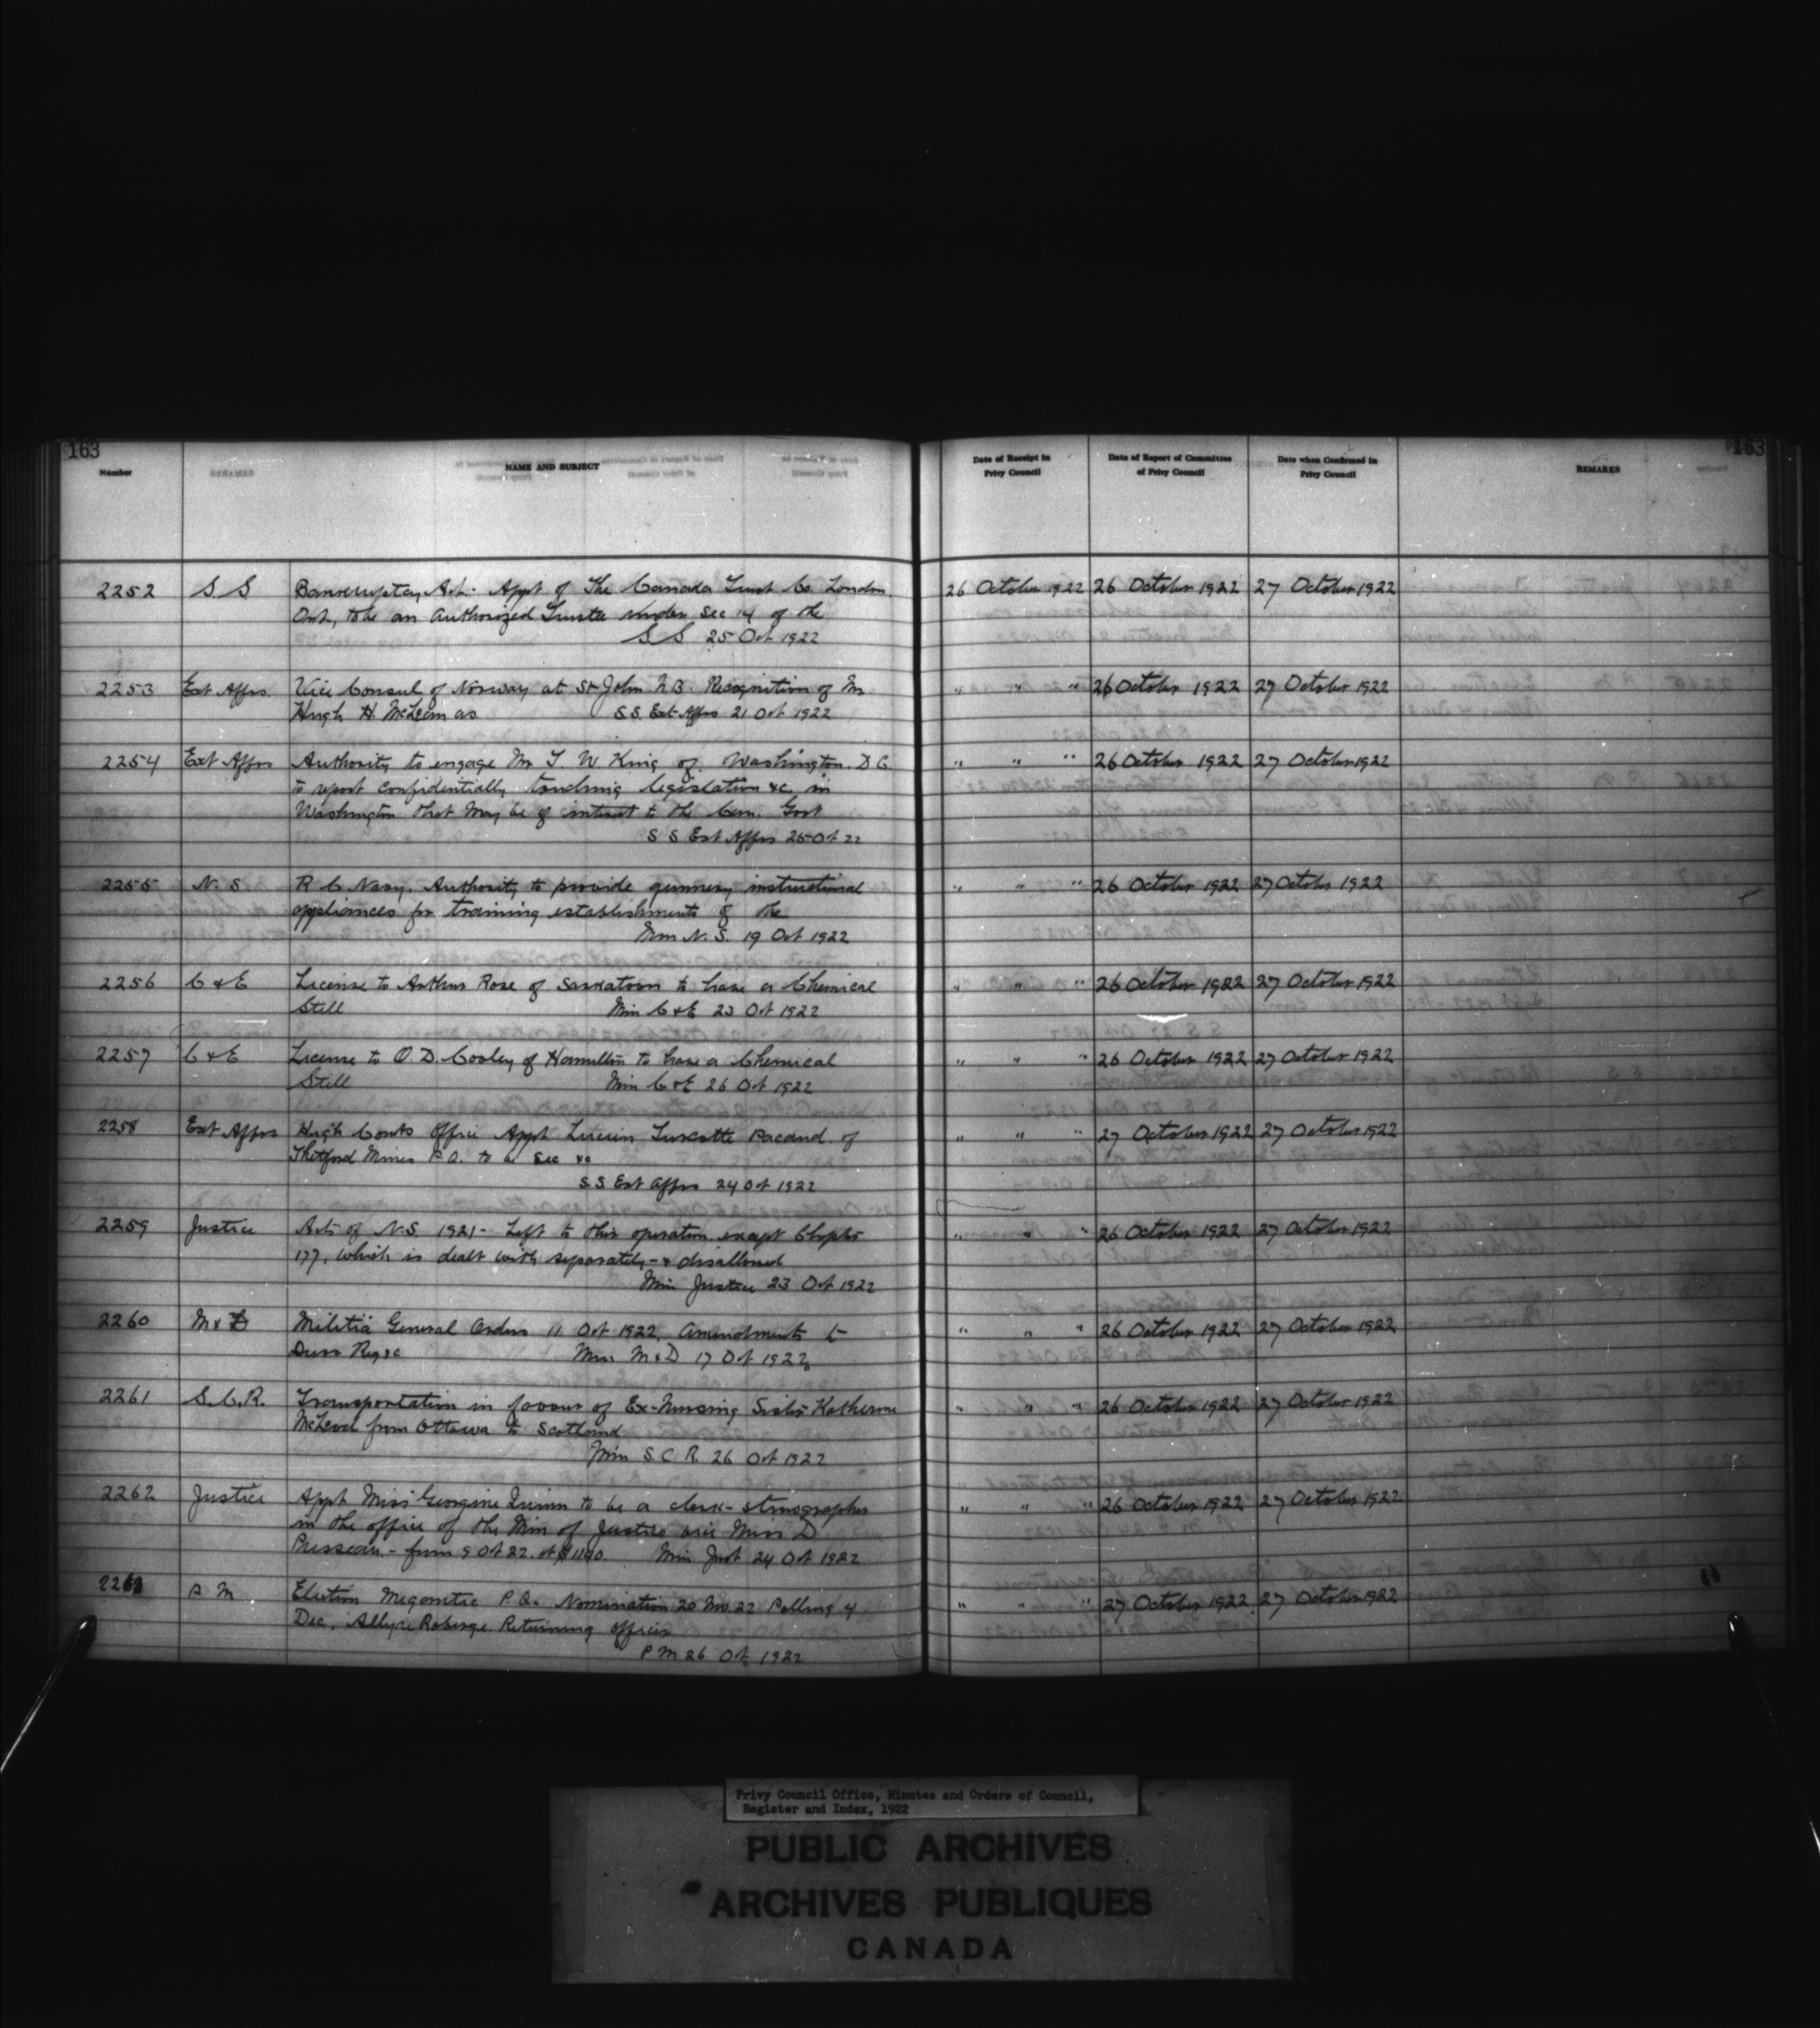 163
163
Number
NAME AND SUBJECT
Date of Receipt in Privy Council
Date of Report of Committee of Privy Council
Date when Confirmed in Privy Council
REMARKS
2252 S. S Bankruptcy Act: Appt of The Canada Trust Co. London 26 October 1922 26 October 1922 27 October 1922
Ont, to be an Authorized Trustee under Sec 14 of the
S S 25 Oct 1922
2253 Ext Affrs. Vice Consul of Norway at St John N.B. Recognition of Mr " " " 26 October 1922 27 October 1922
Hugh H. McLean as S.S. Ext Affrs 21 Oct 1922
2254 Ext Affrs Authority to engage Mr T. W. King of Washington. D C. " " " 26 October 1922 27 October 1922
to report confidentially touching legislation &c. in
Washington that may be of interest to the Can. Govt
S S Ext Affrs 25 Oct 22
2255 N. S. R C Navy. Authority to provide gunnery instructional " " " 26 October 1922 27 October 1922
appliances for training establishments of the
Min N. S. 19 Oct 1922
2256 C & E License to Arthur Rose of Saskatoon to have a Chemical " " " 26 October 1922 27 October 1922
Still Min C & E 23 Oct 1922
2257 C & E License to O. D. Cooley of Hamilton to have a Chemical " " " 26 October 1922 27 October 1922
Still Min C & E 26 Oct 1922
2258 Ext Affrs High Comrs Office Appt Lucien Turcotte Pacaud of " " " 27 October 1922 27 October 1922
Thetford Mines P.Q. to be Sec &c
S S Ext Affrs 24 Oct 1922
2259 Justice Acts of N.S. 1921 - Left to their operation except Chapter " " " 26 October 1922 27 October 1922
177, which is dealt with separately - & disallowed
Min Justice 23 Oct 1922
2260 M & D Militia General Orders 11 Oct 1922. Amendments to " " " 26 October 1922 27 October 1922
Min M & D 17 Oct 1922
2261 S. C. R. Transportation in favour of Ex-Nursing Sister Katherine " " " 26 October 1922 27 October 1922
McLeod from Ottawa to Scotland
Min S. C R. 26 Oct 1922
2262 Justice Appt Miss Georgine Quinn to be a clerk-stenographer " " " 26 October 1922 27 October 1922
in the office of the Min of Justice vice Miss D
- from 9 Oct 22. at $1140. Min Just 24 Oct 1922
2263 P M Election Megantic P.Q. Nomination 20 Nov. 22 Polling 4 " " " 27 October 1922 27 October 1922
Dec. Allyre Roberge Returning officer
P M 26 Oct 1922
Privy Council Office, Minutes and Orders of Council,
Register and Index, 1922
PUBLIC ARCHIVES
ARCHIVES PUBLIQUES
CANADA